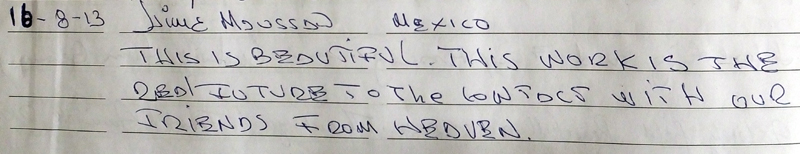 16-8-13 Jaime Maussan MEXICO
THIS IS BEAUTIFUL. THIS WORK IS THE
REAL FUTURE TO The CONTACT WITH OUR
FRIENDS FROM HEAVEN.